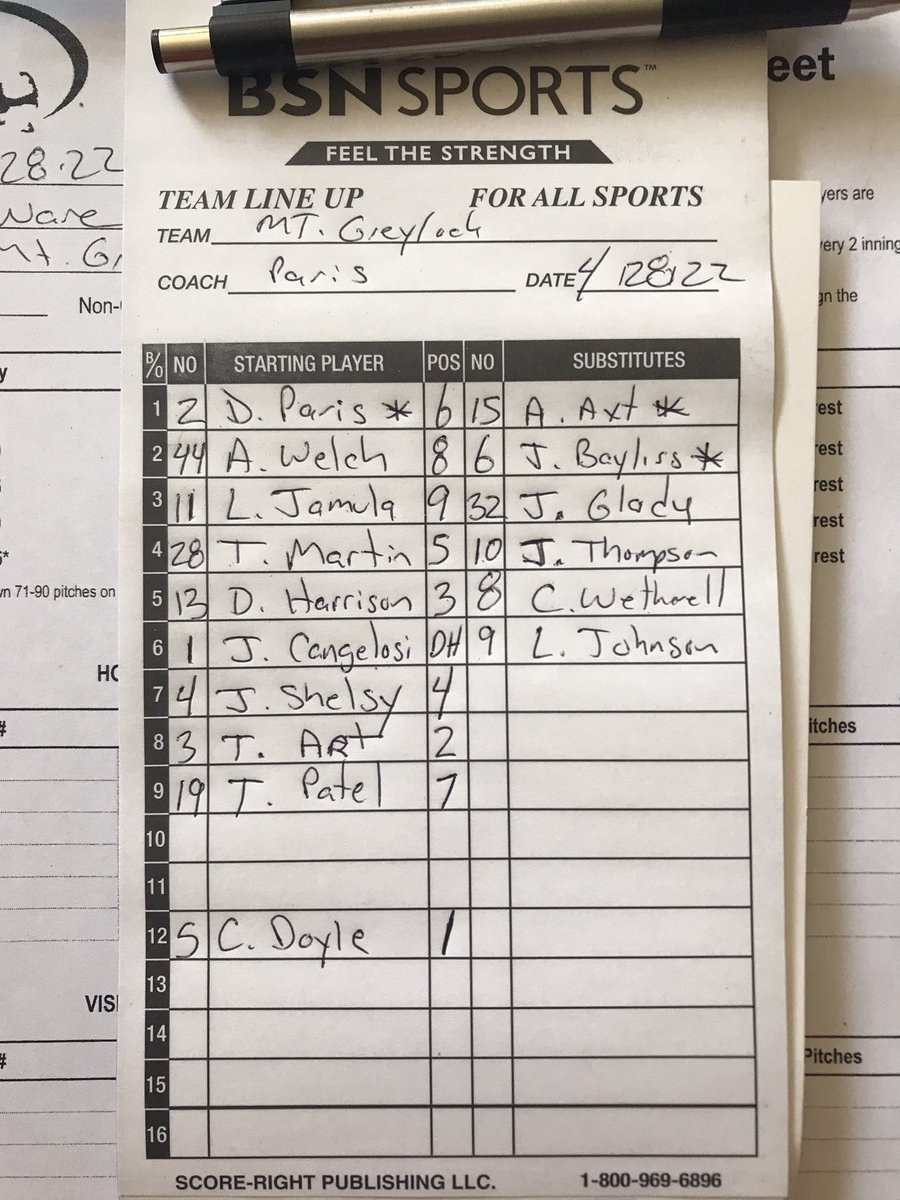 eet
BSN SPORTS™
FEEL THE STRENGTH
28.22
TEAM LINE UP FOR ALL SPORTS
yers are
Ware
TEAM MT. Greylock
ery 2 inning
Mt. G
COACH Paris DATE 4/28.22
gn the
Non-
B/O NO STARTING PLAYER POS NO SUBSTITUTES
y
1 2 D. Paris * 6 15 A. Axt *
est
2 44 A. Welch 8 6 J. Bayliss *
est
3 11 L. Jamula 9 32 J. Glady
est
rest
4 28 T. Martin 5 10 J. Thompson
rest
*
wn 71-90 pitches on
5 13 D. Harrison 3 8 C. Wetherell
6 1 J. Cangelosi DH 9 L. Johnson
HO
7 4 J. Shelsy 4
#
itches
8 3 T. ART 2
9 19 T. Patel 7
10
11
12 5 C. Doyle 1
13
VISI
14
#
Pitches
15
16
SCORE-RIGHT PUBLISHING LLC. 1-800-969-6896